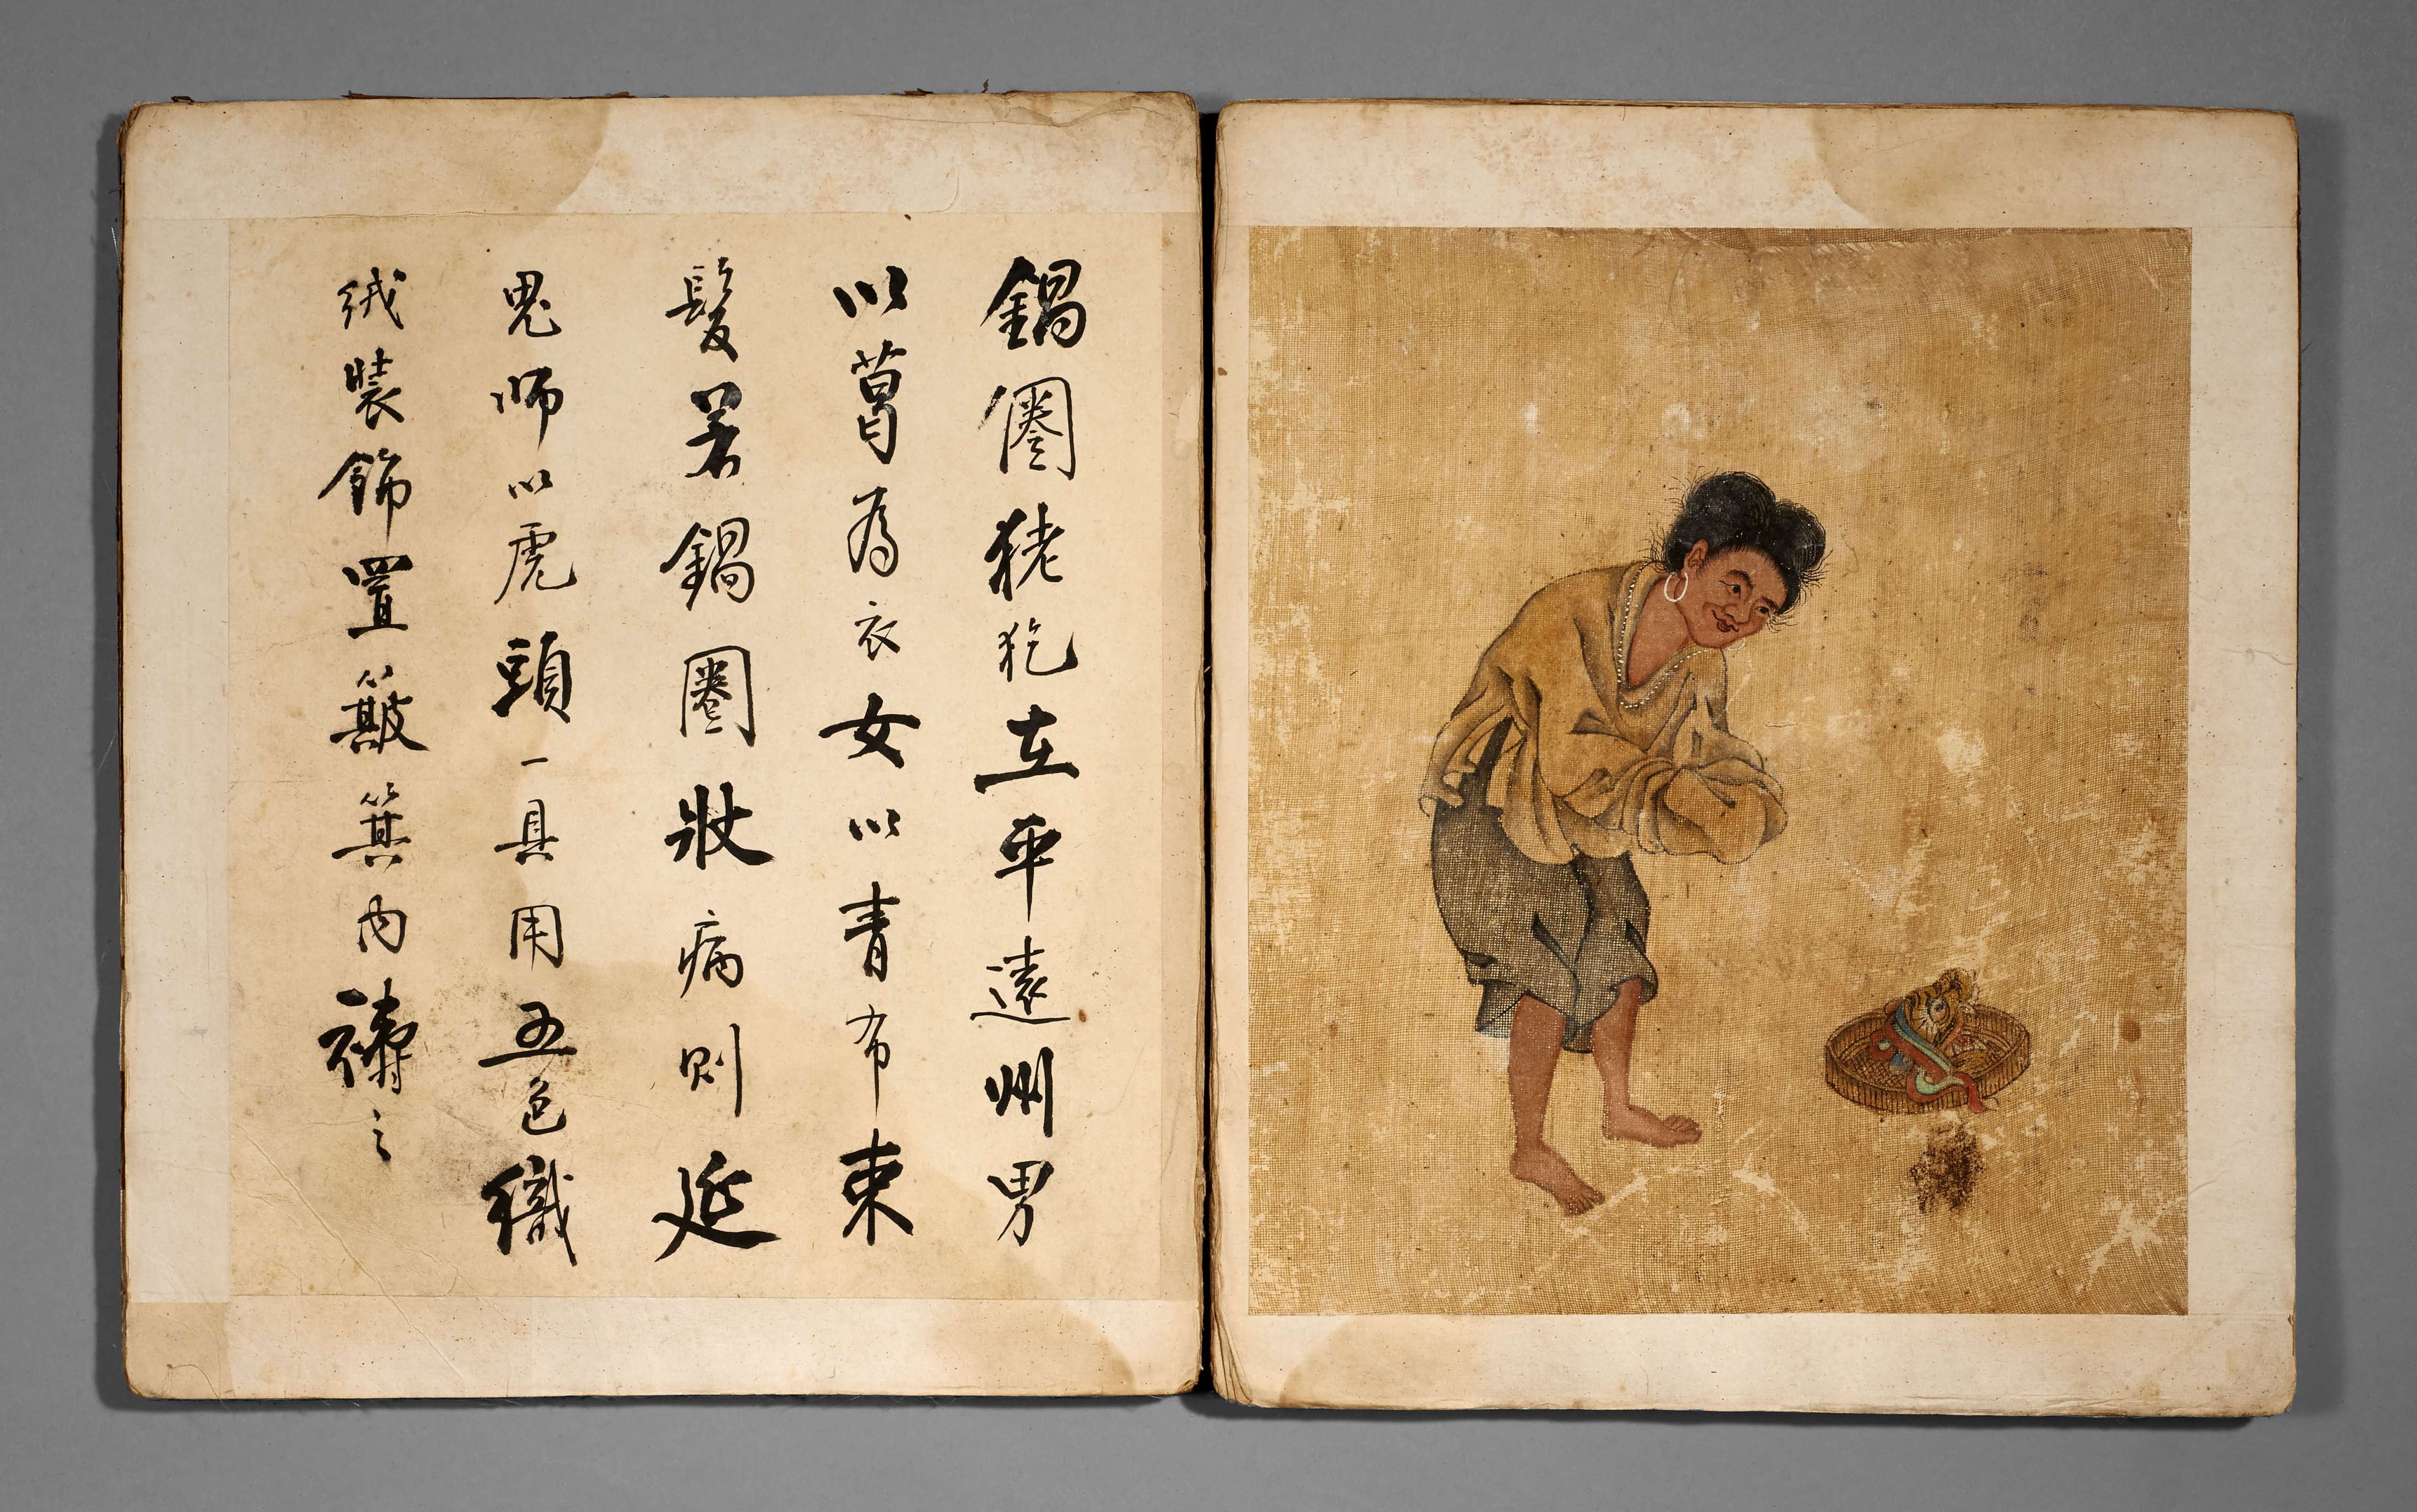 鍋圈狫犵在平遠州男
以葛為衣女以青布束
髮若鍋圈狀病則延
鬼師以虎頭一具用五色織
絨裝飾置簸箕內禱之